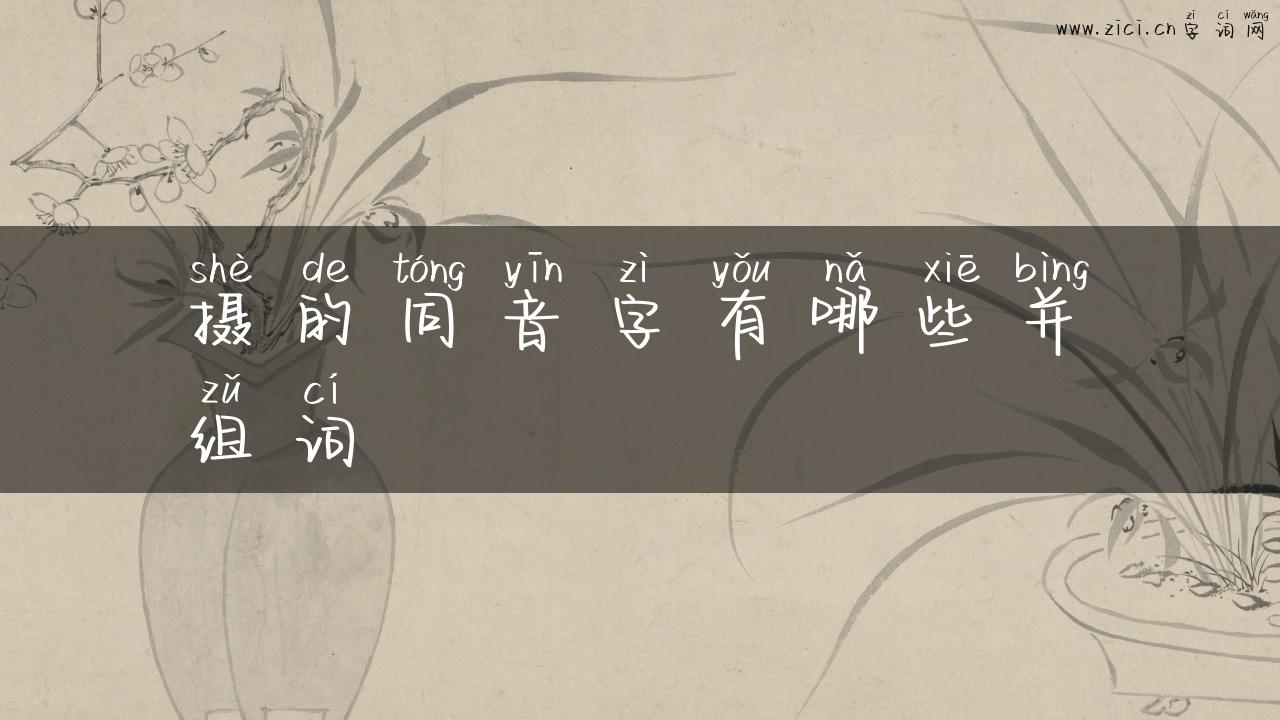 zì cí wǎng
www.zici.cn字词网
shè de tóng yīn zì yǒu nǎ xiē bìng
摄的同音字有哪些并
zǔ cí
组词